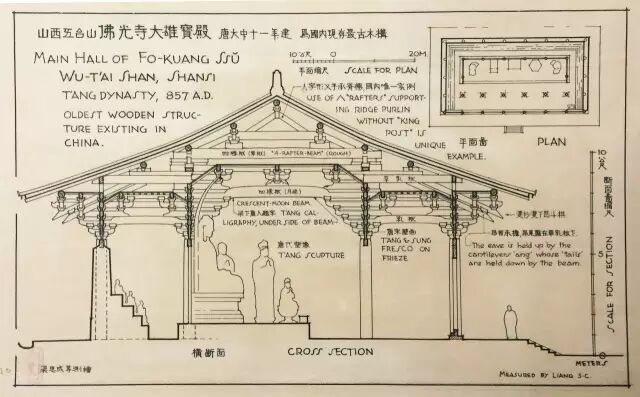 山西五台山佛光寺大雄寶殿 唐大中十一年建 爲國内現存最古木構
MAIN HALL OF FO-KUANG SSŬ
WU-T'AI SHAN, SHANSI
T'ANG DYNASTY, 857 A.D.
OLDEST WOODEN STRUC-
TURE EXISTING IN
CHINA.
0
20M.
平面縮尺 SCALE FOR PLAN
USE OF A "RAFTERS" SUPPORT-
ING RIDGE PURLIN
WITHOUT "KING
POST" IS
UNIQUE
EXAMPLE.
平面圖 PLAN
"4-RAFTER-BEAM" (ROUGH)
CRESCENT-MOON BEAM
T'ANG CAL-
LIGRAPHY, UNDER SIDE OF BEAM
唐代塑像
T'ANG SCUPTURE
乳栿
T'ANG & SUNG
FRESCO ON
FRIEZE
The eave is held up by the
cantilevers 'ang' whose 'tails'
are held down by the beam.
10
5
0
斷面縮尺
SCALE FOR SECTION
METERS
橫斷面 CROSS SECTION
梁思成等測繪
MEASURED BY LIANG S-C.